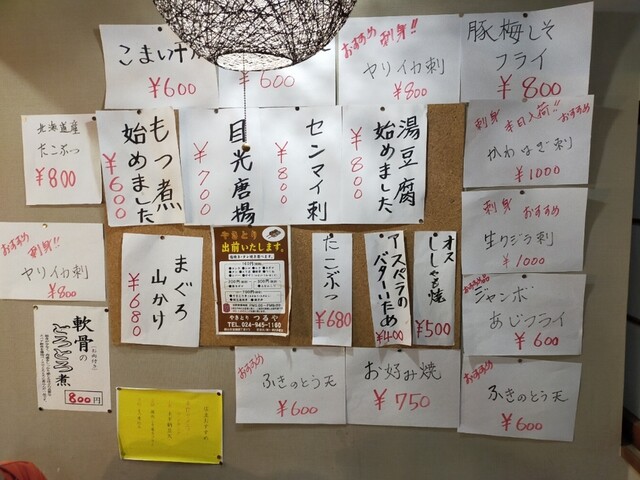 こまい
¥600
¥600
おすすめ 刺身!!
ヤリイカ刺
¥800
豚梅しそ
フライ
¥800
北海道産
たこぶつ
¥800
もつ煮
始めました
¥600
目光唐揚
¥700
センマイ刺
¥800
湯豆腐
始めました
¥800
刺身 本日入荷!! おすすめ
かわはぎ刺
¥1000
おすすめ 刺身!!
ヤリイカ刺
¥800
まぐろ
山かけ
¥680
やきとり
出前いたします。
やきとり つるや
TEL.024-945-1160
たこぶつ
¥680
アスパラの
バターいため
¥400
オス
ししゃも焼
¥500
刺身 おすすめ
生クジラ刺
¥1000
おすすめ
ジャンボ
あじフライ
¥600
軟骨の
とろとろ煮
800円
おすすめ
ふきのとう天
¥600
お好み焼
¥750
おすすめ
ふきのとう天
¥600